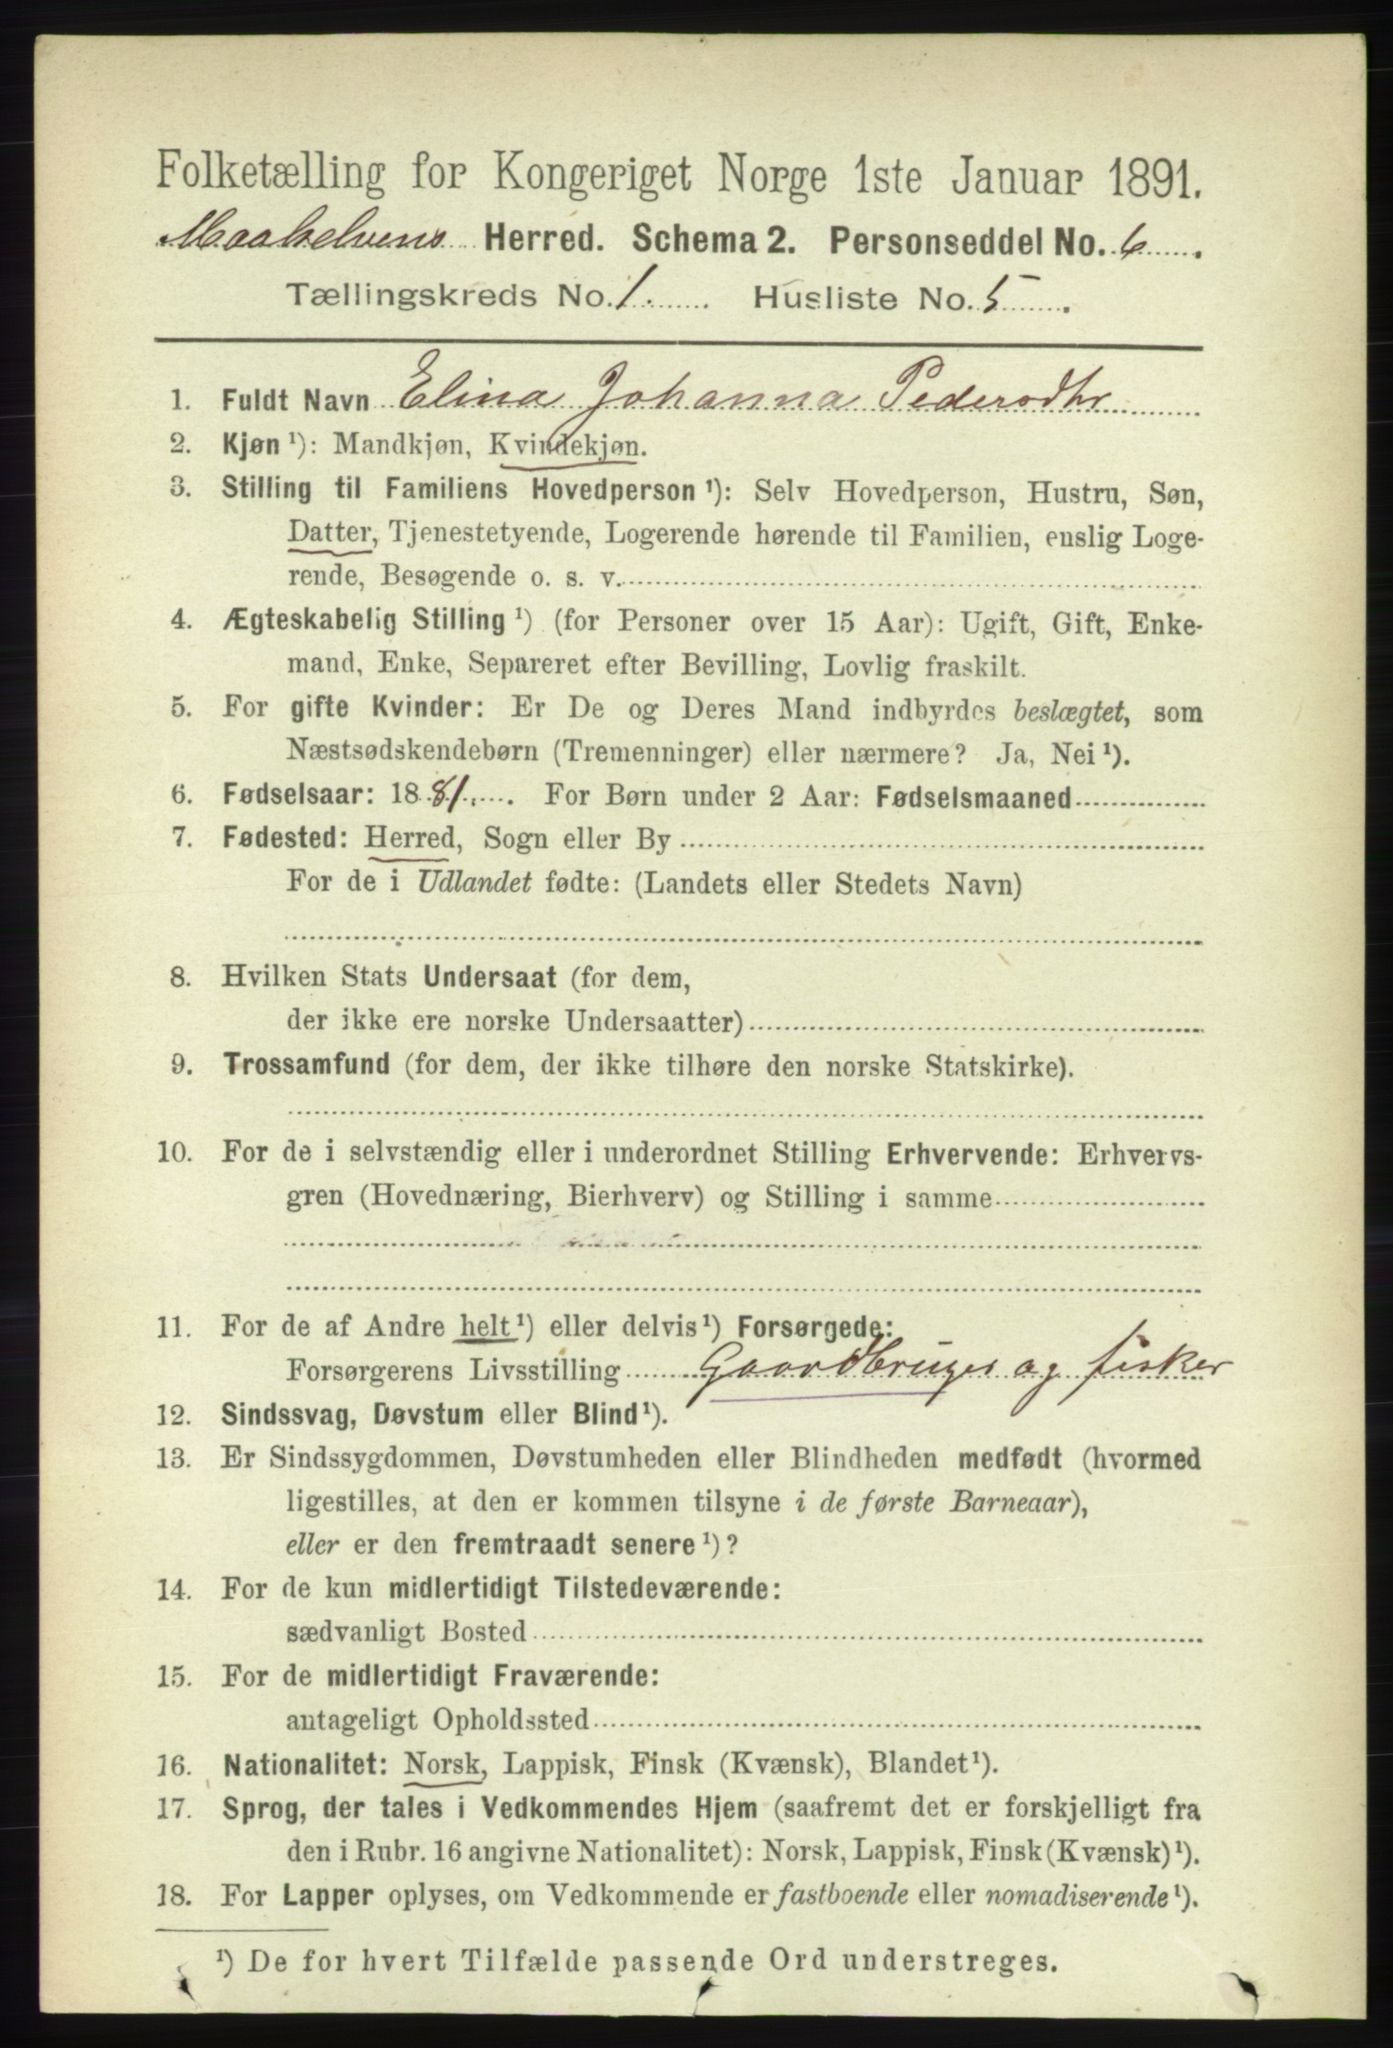 Folketælling for Kongeriget Norge 1ste Januar 1891.
Maalselvens Herred. Schema 2. Personseddel No. 6
Tællingskreds No. 1. Husliste No. 5
1. Fuldt Navn Elina Johanna Pedersdtr
2. Kjøn ¹): Mandkjøn, Kvindekjøn.
3. Stilling til Familiens Hovedperson ¹): Selv Hovedperson, Hustru, Søn,
Datter, Tjenestetyende, Logerende hørende til Familien, enslig Loge-
rende, Besøgende o. s. v.
4. Ægteskabelig Stilling ¹) (for Personer over 15 Aar): Ugift, Gift, Enke-
mand, Enke, Separeret efter Bevilling, Lovlig fraskilt.
5. For gifte Kvinder: Er De og Deres Mand indbyrdes beslægtet, som
Næstsødskendebørn (Tremenninger) eller nærmere? Ja, Nei ¹).
6. Fødselsaar: 1881. For Børn under 2 Aar: Fødselsmaaned
7. Fødested: Herred, Sogn eller By
For de i Udlandet fødte: (Landets eller Stedets Navn)
8. Hvilken Stats Undersaat (for dem,
der ikke ere norske Undersaatter)
9. Trossamfund (for dem, der ikke tilhøre den norske Statskirke).
10. For de i selvstændig eller i underordnet Stilling Erhvervende: Erhvervs-
gren (Hovednæring, Bierhverv) og Stilling i samme
11. For de af Andre helt ¹) eller delvis ¹) Forsørgede:
Forsørgerens Livsstilling Gaardbruger og fisker
12. Sindssvag, Døvstum eller Blind ¹).
13. Er Sindssygdommen, Døvstumheden eller Blindheden medfødt (hvormed
ligestilles, at den er kommen tilsyne i de første Barneaar),
eller er den fremtraadt senere ¹)?
14. For de kun midlertidigt Tilstedeværende:
sædvanligt Bosted
15. For de midlertidigt Fraværende:
antageligt Opholdssted
16. Nationalitet: Norsk, Lappisk, Finsk (Kvænsk), Blandet ¹).
17. Sprog, der tales i Vedkommendes Hjem (saafremt det er forskjelligt fra
den i Rubr. 16 angivne Nationalitet): Norsk, Lappisk, Finsk (Kvænsk) ¹).
18. For Lapper oplyses, om Vedkommende er fastboende eller nomadiserende ¹).
¹) De for hvert Tilfælde passende Ord understreges.